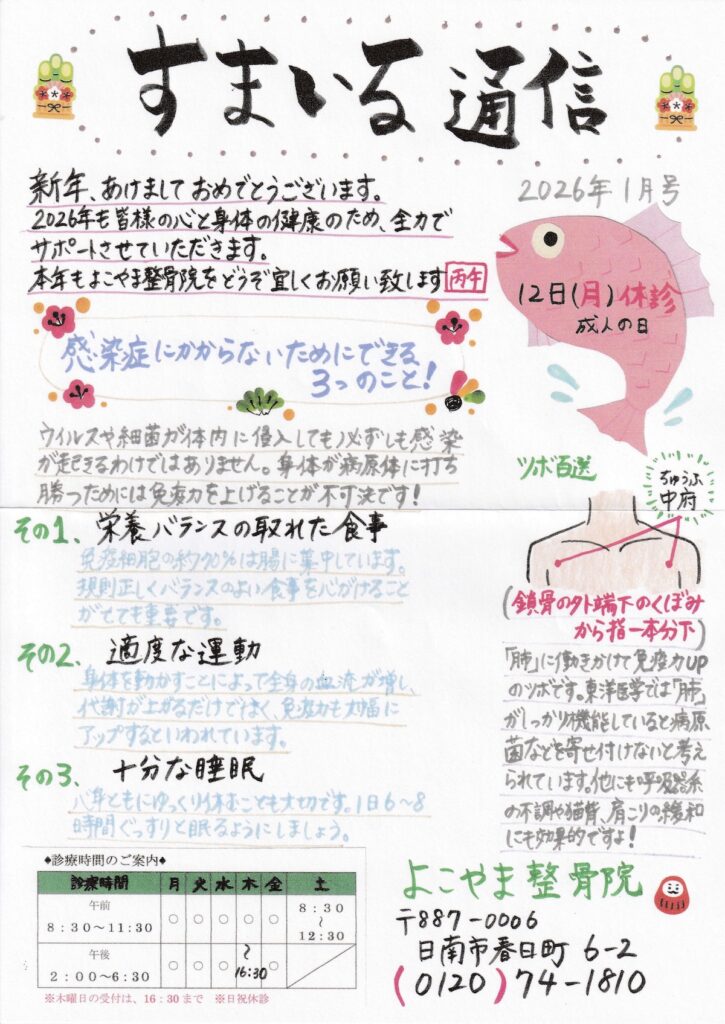 すまいる通信
2026年1月号
新年、あけましておめでとうございます。
2026年も皆様の心と身体の健康のため、全力で
サポートさせていただきます。
本年もよこやま整骨院をどうぞ宜しくお願い致します 丙午
12日(月)休診
成人の日
感染症にかからないためにできる
3つのこと!
ウイルスや細菌が体内に侵入しても必ずしも感染
が起きるわけではありません。身体が病原体に打ち
勝つためには免疫力を上げることが不可決です!
その1、栄養バランスの取れた食事
免疫細胞の約70%は腸に集中しています。
規則正しくバランスのよい食事を心がけること
がとても重要です。
その2、適度な運動
身体を動かすことによって全身の血流が増し、
代謝が上がるだけではく、免疫力も大幅に
アップするといわれています。
その3、十分な睡眠
心身ともにゆっくり休むことも大切です。1日6~8
時間ぐっすりと眠るようにしましょう。
ツボ百選
ちゅうふ
中府
(鎖骨の外端下のくぼみ
から指一本分下)
「肺」に働きかけて免疫力UP
のツボです。東洋医学では「肺」
がしっかり機能していると病原
菌などを寄せ付けないと考え
られています。他にも呼吸器系
の不調や猫背、肩こりの緩和
にも効果的ですよ!
◆診療時間のご案内◆
診療時間 月 火 水 木 金 土
午前
8:30~11:30 ○ ○ ○ ○ ○ 8:30~12:30
午後
2:00~6:30 ○ ○ ○ ~16:30 ○
※木曜日の受付は、16:30まで ※日祝休診
よこやま整骨院
〒887-0006
日南市春日町 6-2
(0120)74-1810